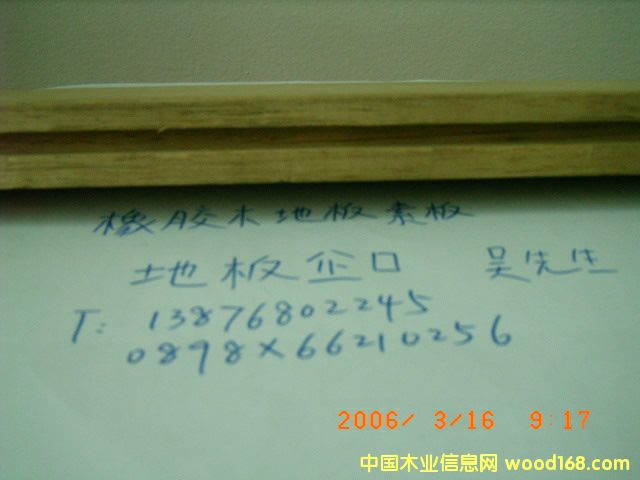 橡胶木地板素板
地板企口 吴先生
T: 13876802245
0898×66210256
2006/ 3/16 9:17
中国木业信息网 wood168.com